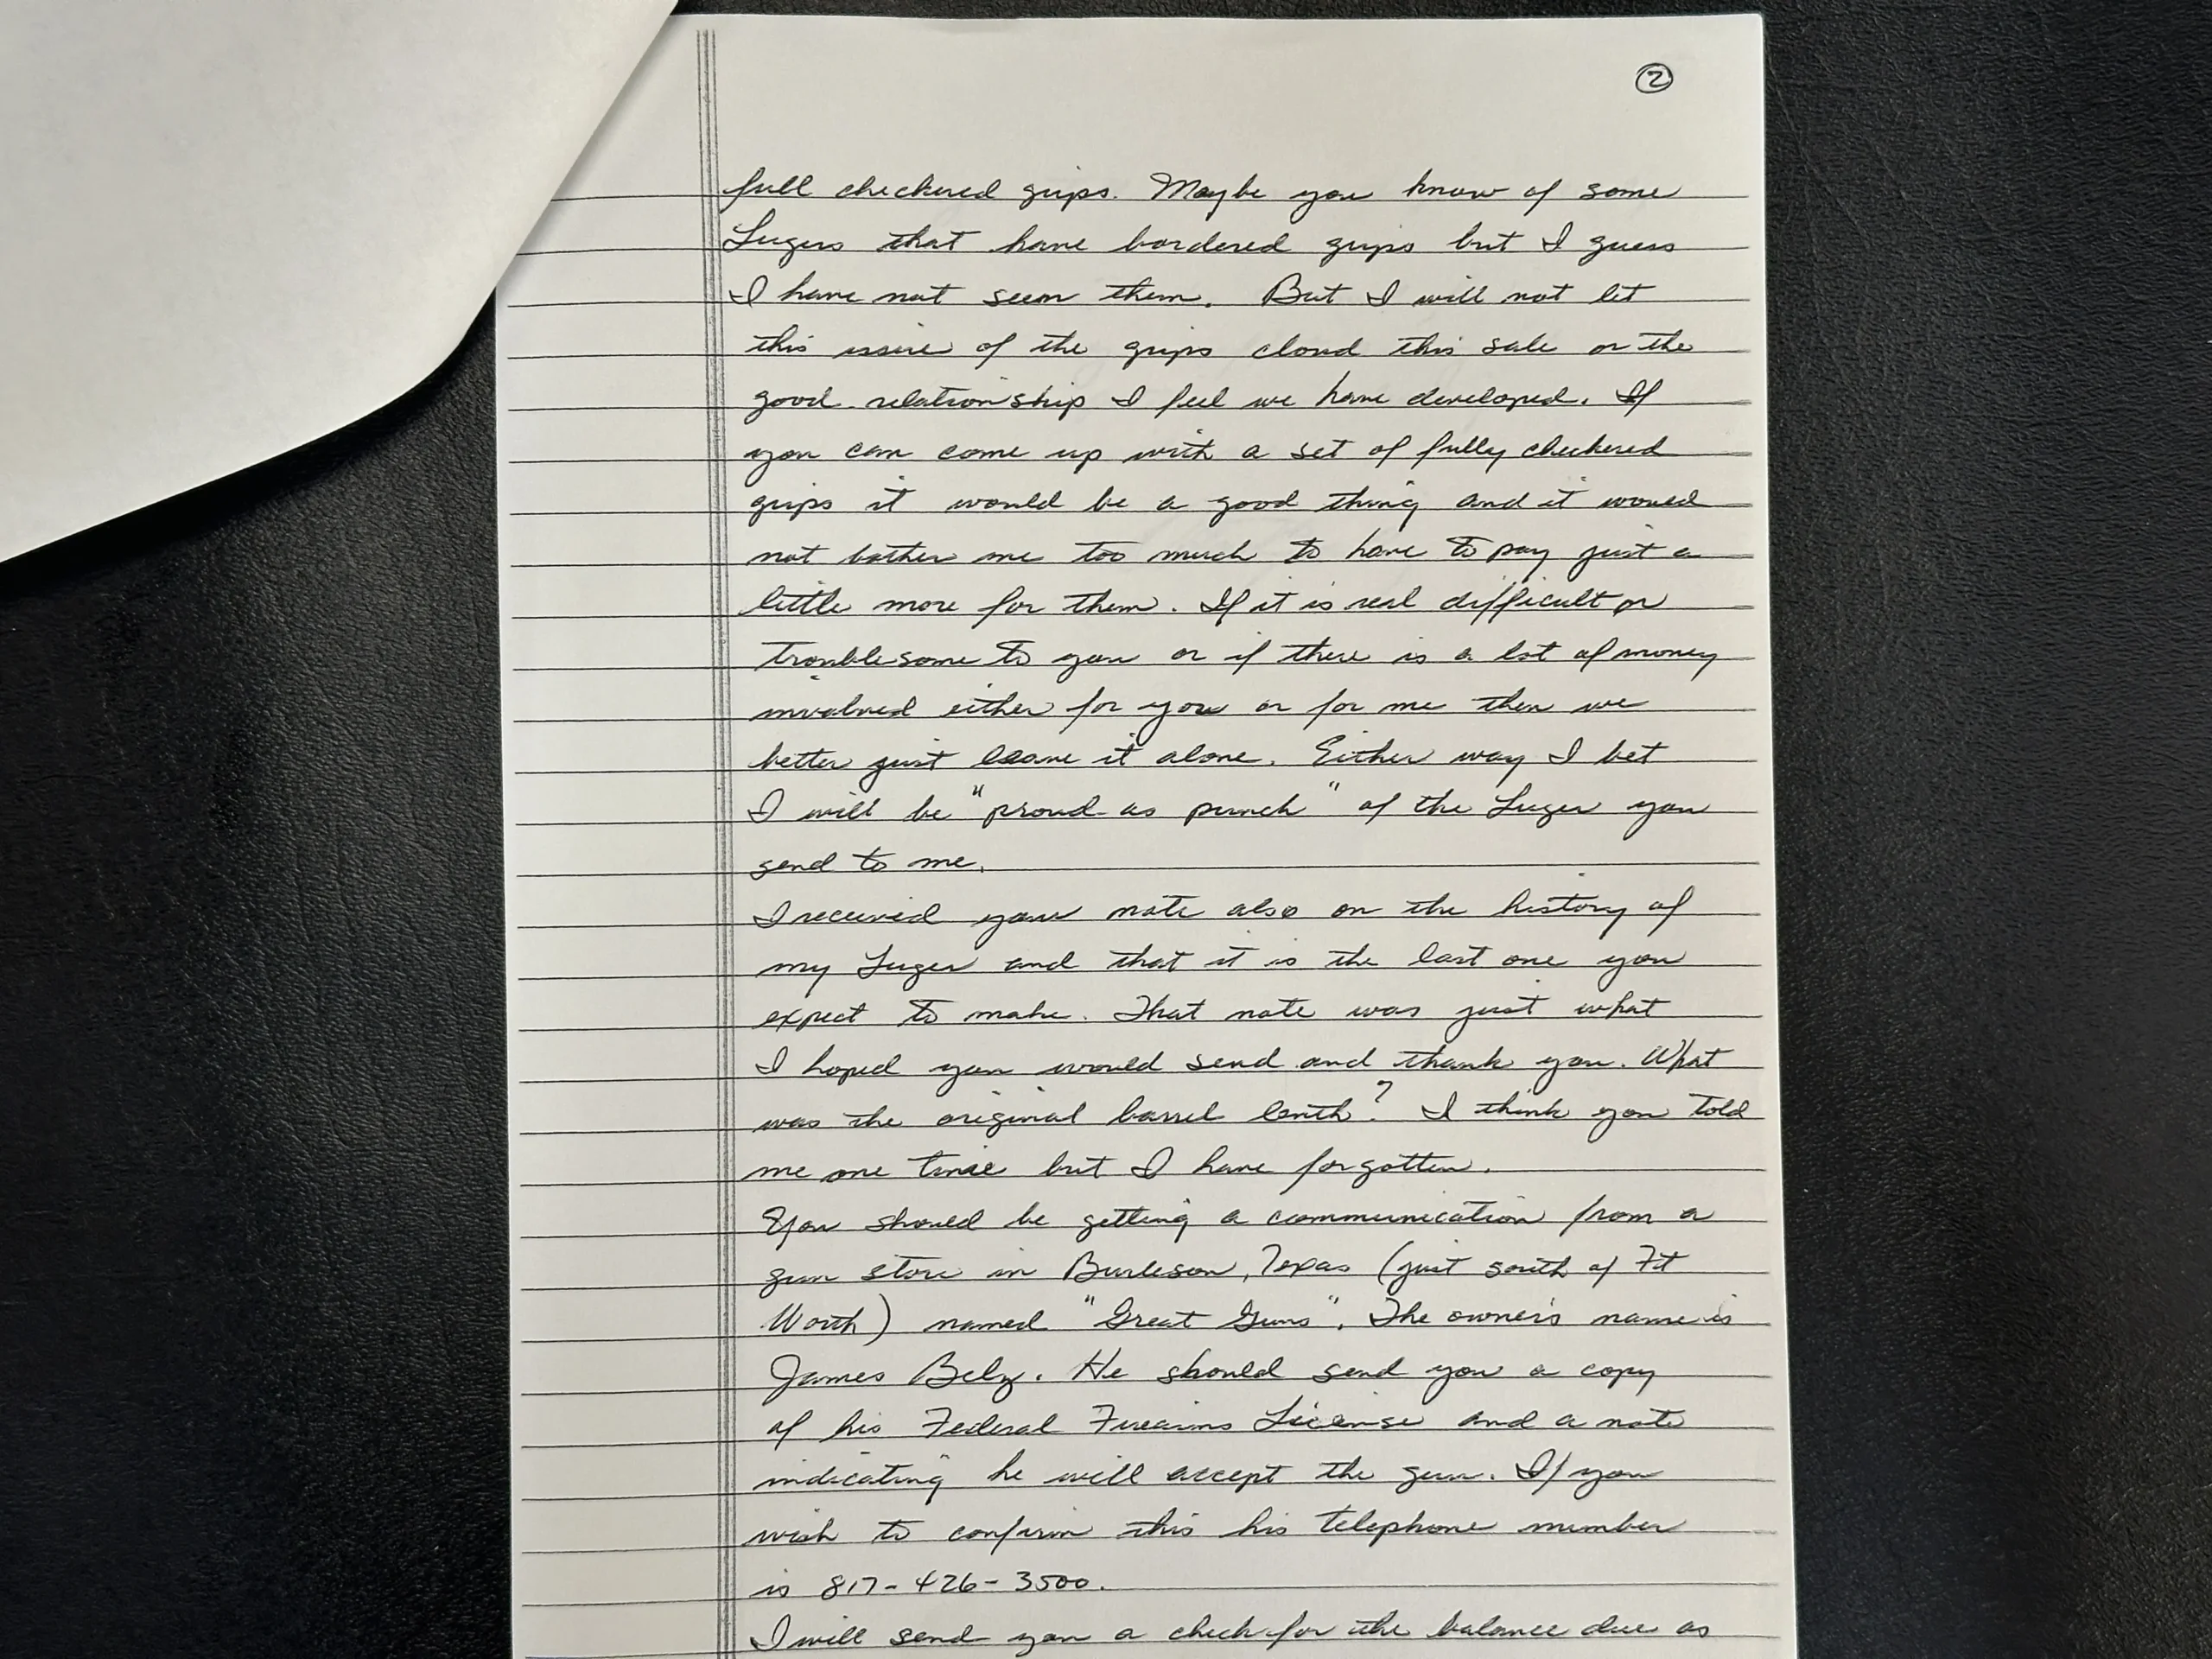 2
full checkered grips. Maybe you know of some
Lugers that have bordered grips but I guess
I have not seen them. But I will not let
this issue of the grips cloud this sale or the
good relationship I feel we have developed. If
you can come up with a set of fully checkered
grips it would be a good thing and it would
not bother me too much to have to pay just a
little more for them. If it is real difficult or
troublesome to you or if there is a lot of money
involved either for you or for me then we
better just leave it alone. Either way I bet
I will be "proud as punch" of the Luger you
send to me.
I received your note also on the history of
my Luger and that it is the last one you
expect to make. That note was just what
I hoped you would send and thank you. What
was the original barrel lenth? I think you told
me one time but I have forgotten.
You should be getting a communication from a
gun store in Burleson, Texas (just south of Ft
Worth) named "Great Guns". The owner's name is
James Belz. He should send you a copy
of his Federal Firearms License and a note
indicating he will accept the gun. If you
wish to confirm this his telephone number
is 817-426-3500.
I will send you a check for the balance due as